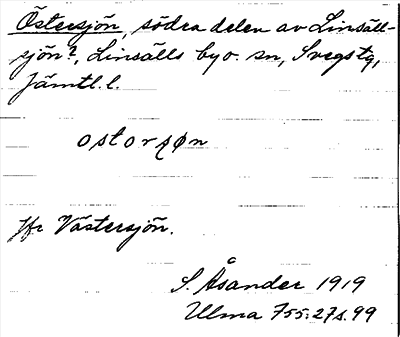 Östersjön, södra delen av Linsäll-
sjön?, Linsälls by o. sn, Svegs tg,
Jämtl. l.
ostorsøn
Jfr Västersjön.
S. Åsander 1919
Ulma 755:27 s. 99